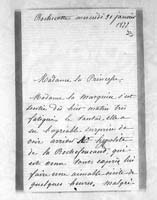 Rochecotte mercredi 31 janvier
1877
Madame la Princesse,
Madame la Marquise s'est
sentie dès hier matin très
fatiguée. Le tantôt, elle a
eu l'agréable surprise de
voir arriver Mr Hyppolite
de la Rochefoucaud, qui
est venu tout exprès lui
faire une aimable visite de
quelques heures, malgré